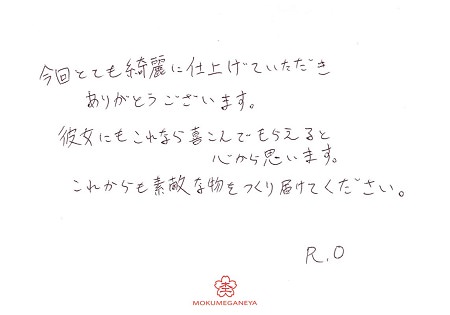 今回とても綺麗に仕上げていただき
ありがとうございます。
彼女にもこれなら喜こんでもらえると
心から思います。
これからも素敵な物をつくり届けてください。
R.O
MOKUMEGANEYA